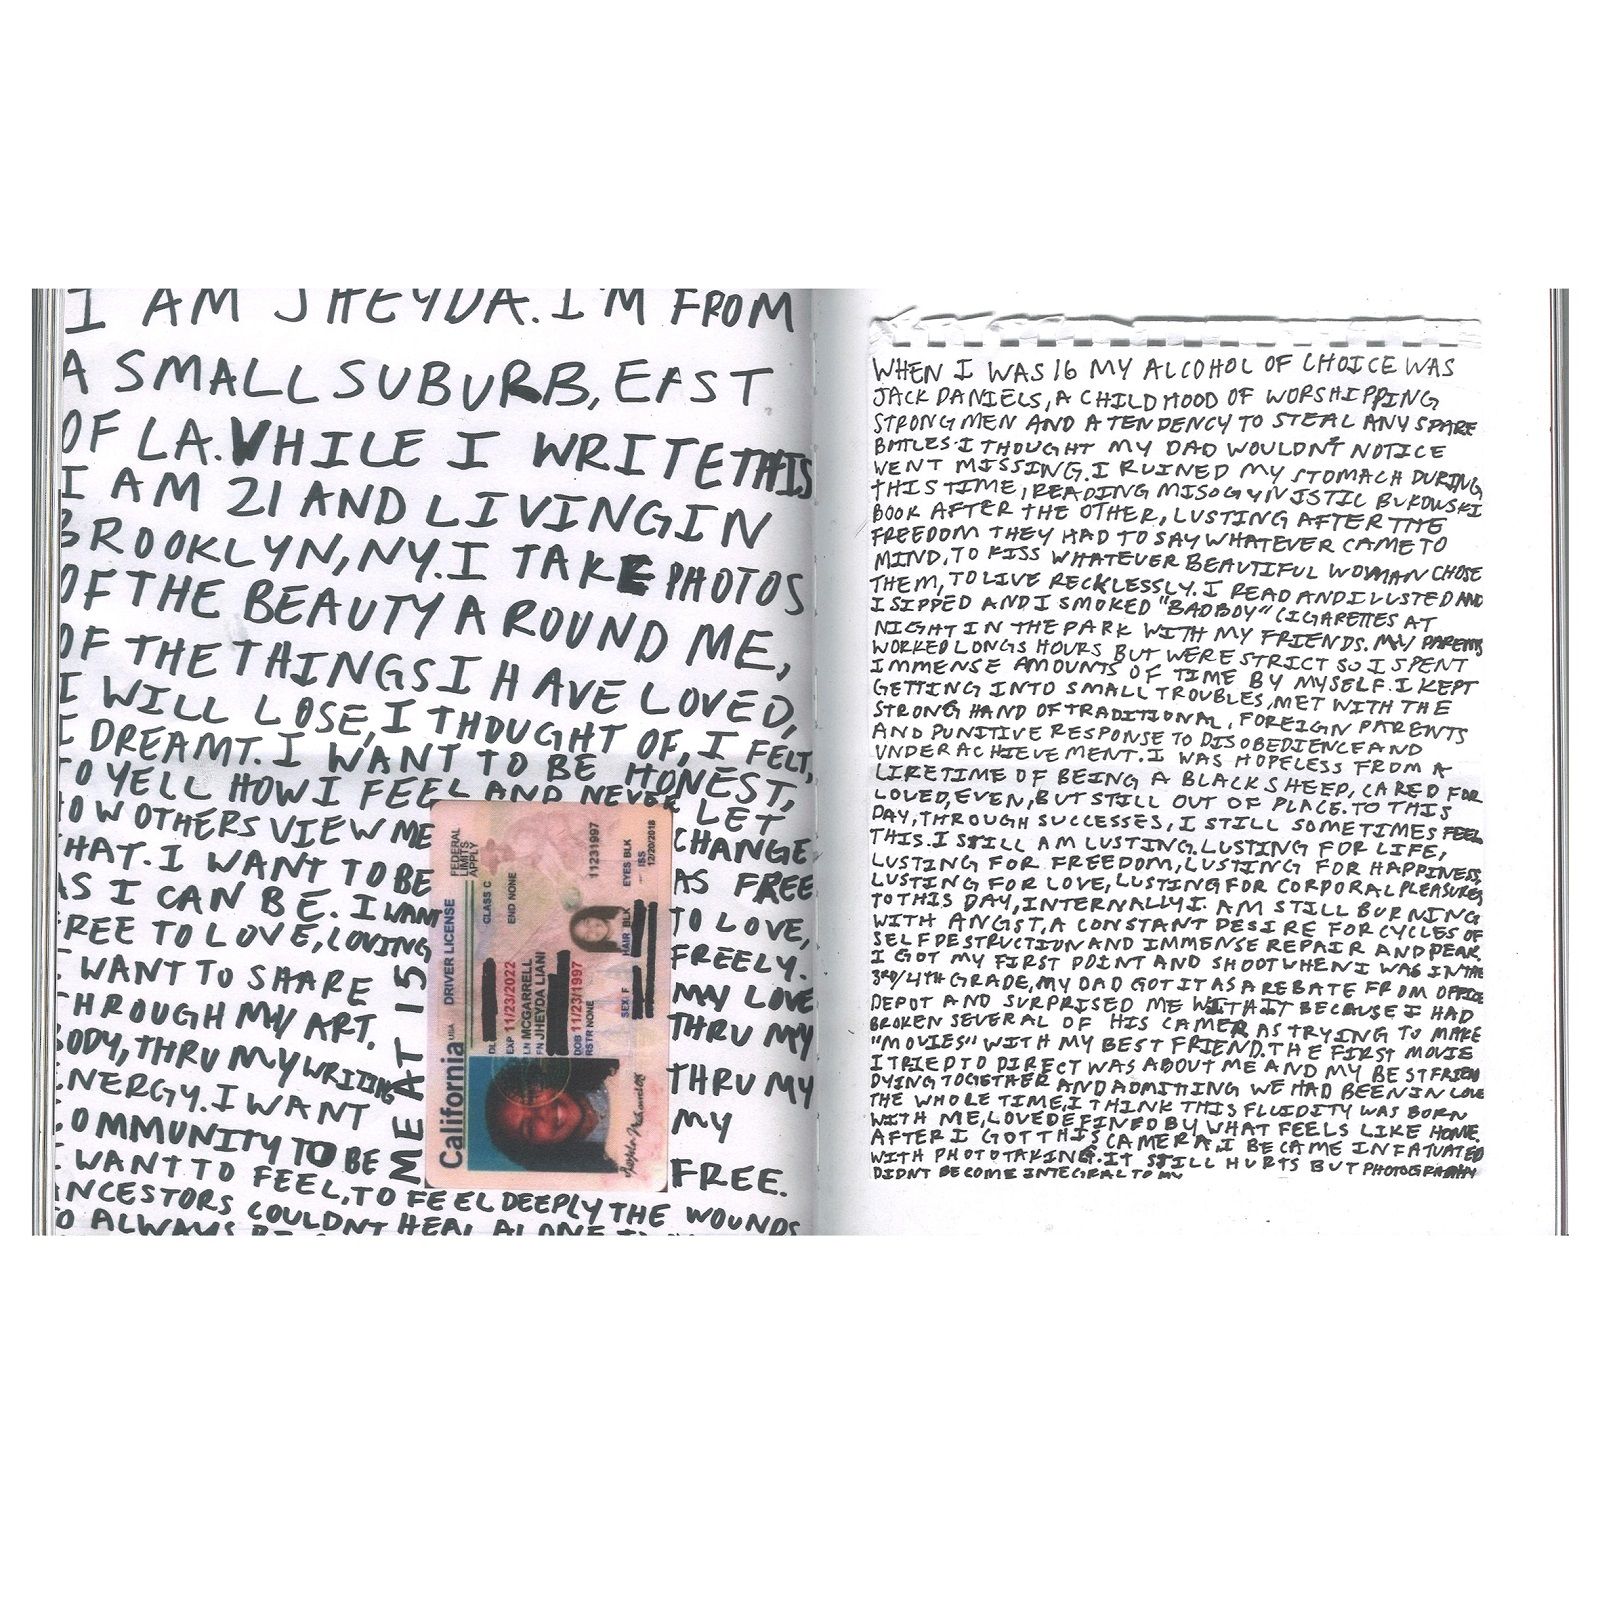 I AM JHEYDA. I'M FROM
A SMALL SUBURB, EAST
OF LA. WHILE I WRITE THIS
I AM 21 AND LIVING IN
BROOKLYN, NY. I TAKE PHOTOS
OF THE BEAUTY AROUND ME,
OF THE THINGS I HAVE LOVED,
I WILL LOSE, I THOUGHT OF, I FELT,
I DREAMT. I WANT TO BE HONEST,
TO YELL HOW I FEEL AND NEVER LET
HOW OTHERS VIEW ME CHANGE
THAT. I WANT TO BE AS FREE
AS I CAN BE. I WANT TO LOVE,
FREE TO LOVE, LOVING FREELY.
I WANT TO SHARE MY LOVE
THROUGH MY ART. THRU MY
BODY, THRU MY WRITING THRU MY
ENERGY. I WANT MY
COMMUNITY TO BE FREE.
I WANT TO FEEL, TO FEEL DEEPLY THE WOUNDS
ANCESTORS COULDNT HEAL ALONE
TO ALWAYS
ME AT 15
California USA DRIVER LICENSE
FEDERAL
LIMITS
APPLY
DL
CLASS C
EXP 11/23/2022
END NONE
LN MCGARRELL
FN JHEYDA LIANI
DOB 11/23/1997
RSTR NONE
11231997
SEX F HAIR BLK EYES BLK
ISS
12/20/2018
WHEN I WAS 16 MY ALCOHOL OF CHOICE WAS
JACK DANIELS, A CHILDHOOD OF WORSHIPPING
STRONG MEN AND A TENDENCY TO STEAL ANY SPARE
BOTTLES I THOUGHT MY DAD WOULDN'T NOTICE
WENT MISSING. I RUINED MY STOMACH DURING
THIS TIME, READING MISOGYNISTIC BUKOWSKI
BOOK AFTER THE OTHER, LUSTING AFTER THE
FREEDOM THEY HAD TO SAY WHATEVER CAME TO
MIND, TO KISS WHATEVER BEAUTIFUL WOMAN CHOSE
THEM, TO LIVE RECKLESSLY. I READ AND I LUSTED AND
I SIPPED AND I SMOKED "BADBOY" CIGARETTES AT
NIGHT IN THE PARK WITH MY FRIENDS. MY PARENTS
WORKED LONGS HOURS BUT WERE STRICT SO I SPENT
IMMENSE AMOUNTS OF TIME BY MYSELF. I KEPT
GETTING INTO SMALL TROUBLES, MET WITH THE
STRONG HAND OF TRADITIONAL, FOREIGN PARENTS
AND PUNITIVE RESPONSE TO DISOBEDIENCE AND
UNDERACHIEVEMENT. I WAS HOPELESS FROM A
LIFETIME OF BEING A BLACK SHEEP, CARED FOR
LOVED, EVEN, BUT STILL OUT OF PLACE. TO THIS
DAY, THROUGH SUCCESSES, I STILL SOMETIMES FEEL
THIS. I STILL AM LUSTING. LUSTING FOR LIFE,
LUSTING FOR FREEDOM, LUSTING FOR HAPPINESS,
LUSTING FOR LOVE, LUSTING FOR CORPORAL PLEASURES
TO THIS DAY, INTERNALLY I AM STILL BURNING
WITH ANGST, A CONSTANT DESIRE FOR CYCLES OF
SELF DESTRUCTION AND IMMENSE REPAIR AND PEAK.
I GOT MY FIRST POINT AND SHOOT WHEN I WAS IN THE
3RD/4TH GRADE, MY DAD GOT IT AS A REBATE FROM OFFICE
DEPOT AND SURPRISED ME WITH IT BECAUSE I HAD
BROKEN SEVERAL OF HIS CAMERAS TRYING TO MAKE
"MOVIES" WITH MY BEST FRIEND. THE FIRST MOVIE
I TRIED TO DIRECT WAS ABOUT ME AND MY BEST FRIEND
DYING TOGETHER AND ADMITTING WE HAD BEEN IN LOVE
THE WHOLE TIME, I THINK THIS FLUIDITY WAS BORN
WITH ME, LOVE DEFINED BY WHAT FEELS LIKE HOME.
AFTER I GOT THIS CAMERA, I BECAME INFATUATED
WITH PHOTOTAKING. IT STILL HURTS BUT PHOTOGRAPHY
DIDNT BECOME INTEGRAL TO MY